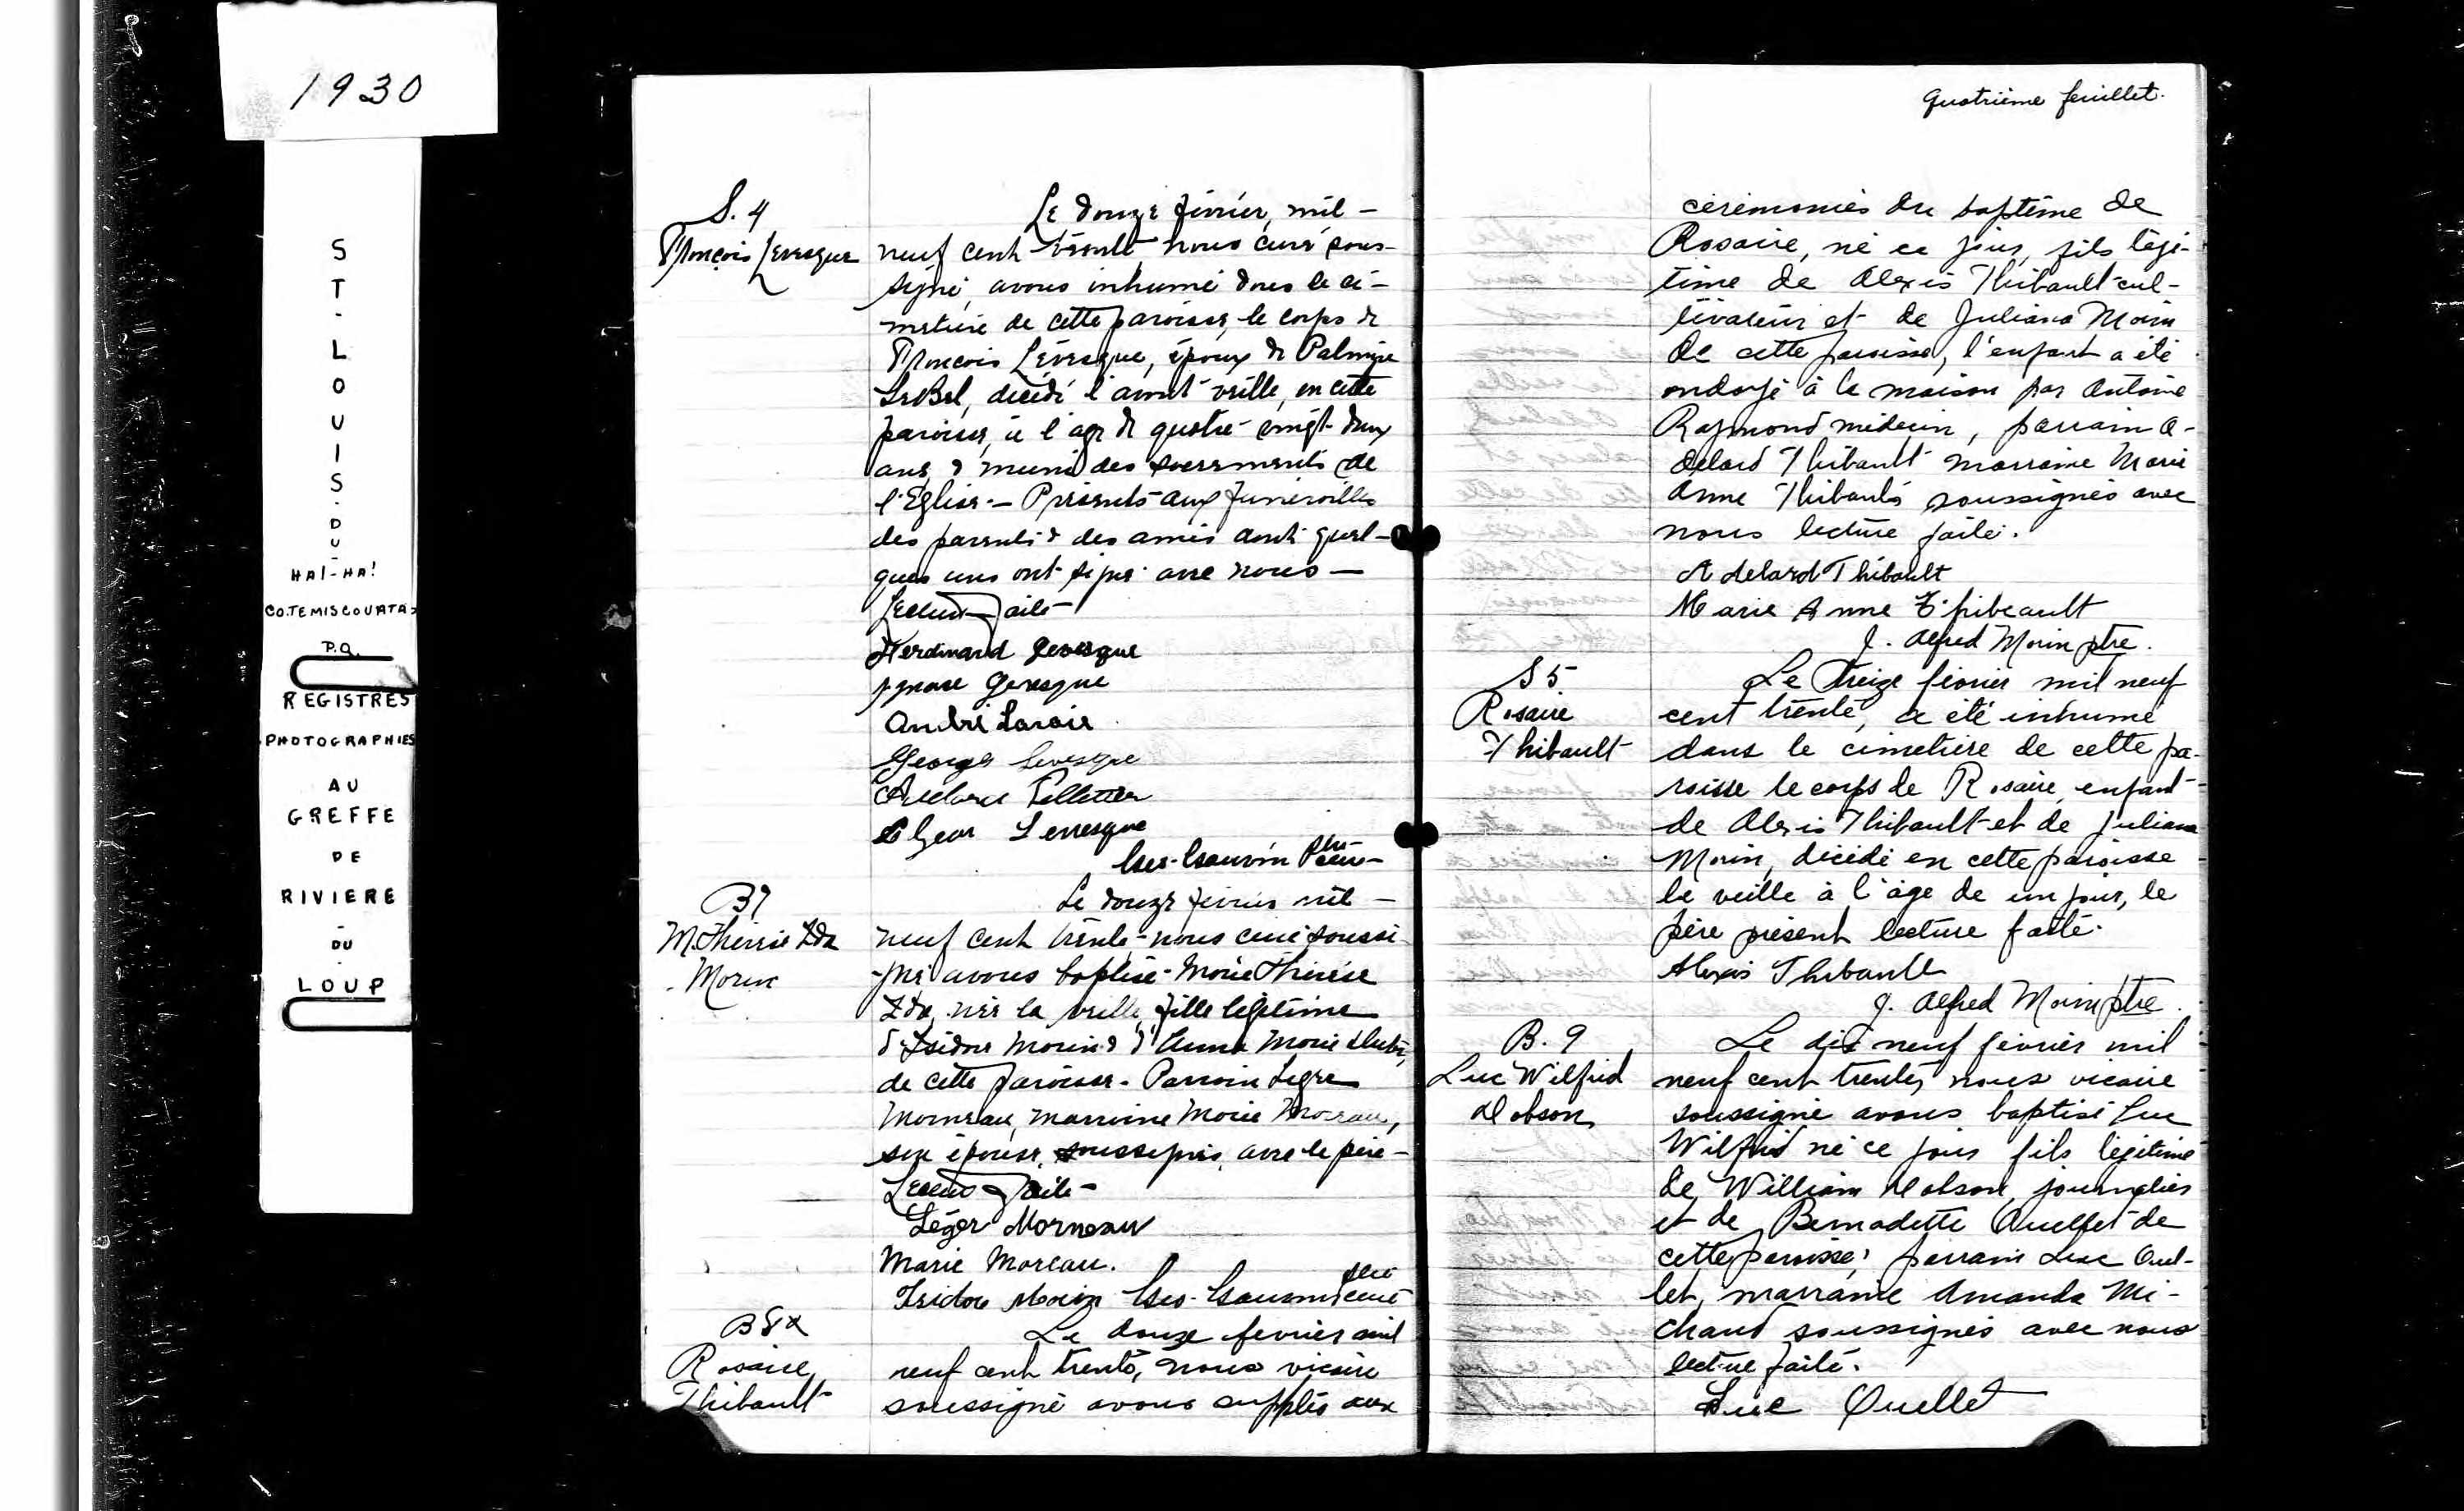 1930
S
T
-
L
O
U
I
S
-
D
U
-
HA!-HA!
CO.TEMISCOUATA
P.Q.
REGISTRES
PHOTOGRAPHIES
AU
GREFFE
DE
RIVIERE
-
DU
-
LOUP
S. 4
François Levesque
Le douze février, mil-
neuf cent trente, nous curé sous-
signé, avons inhumé dans le ci-
metière de cette paroisse, le corps de
François Lévesque, époux de Palmyre
LeBel, décédé l'avant veille, en cette
paroisse, à l'age de quatre-vingt-deux
ans, & muni des sacrements de
l'Eglise. - Présents aux funérailles
des parents & des amis dont quel-
ques uns ont signé avec nous -
Lecture faite -
Ferdinand Levesque
Ignace Levesque
André Lavoie
Georges Levesque
Adelard Pelletier
Elzear Levesque
Ptre
curé
B7
M. Thérèse Ida
Morin
Le douze février mil -
neuf cent trente - nous curé soussi-
gné avons baptisé - Marie Thérèse
Ida, née la veille, fille légitime
d'Isidore Morin & d'Anna Marie Dubé,
de cette paroisse - Parrain Léger
Morneau, marraine Marie Moreau,
son épouse, soussignés, avec le père -
Lecture faite -
Léger Morneau
Marie Moreau.
Isidore Morin
ptre
curé
B8
Rosaire
Thibault
Le douze février mil
neuf cent trente, nous vicaire
soussigné avons supplés aux
Quatrième feuillet.
cérémonies du baptême de
Rosaire, né ce jour, fils légi-
time de Alexis Thibault cul-
tivateur et de Juliana Morin
de cette paroisse, l'enfant a été
ondoyé à la maison par Antoine
Raymond médecin, parrain A-
delard Thibault marraine Marie
Anne Thibault soussignés avec
nous lecture faite.
Adelard Thibault
Marie Anne Thibeault
J. Alfred Morin ptre.
S 5
Rosaire
Thibault
Le Treize février mil neuf
cent trente, a été inhumé
dans le cimetière de cette pa-
roisse le corps de Rosaire, enfant
de Alexis Thibault et de Juliana
Morin, décédé en cette paroisse
la veille à l'âge de un jour, le
père présent lecture faite.
Alexis Thibault
J. Alfred Morin ptre.
B. 9
Luc Wilfrid
Dobson
Le dix neuf février mil
neuf cent trente, nous vicaire
soussigné avons baptisé Luc
Wilfrid né ce jour fils légitime
de William Dobson, journalier
et de Bernadette Ouellet de
cette paroisse, parrain Luc Ouel-
let, marraine Amanda Mi-
chaud soussignés avec nous
lecture faite.
Luc Ouellet